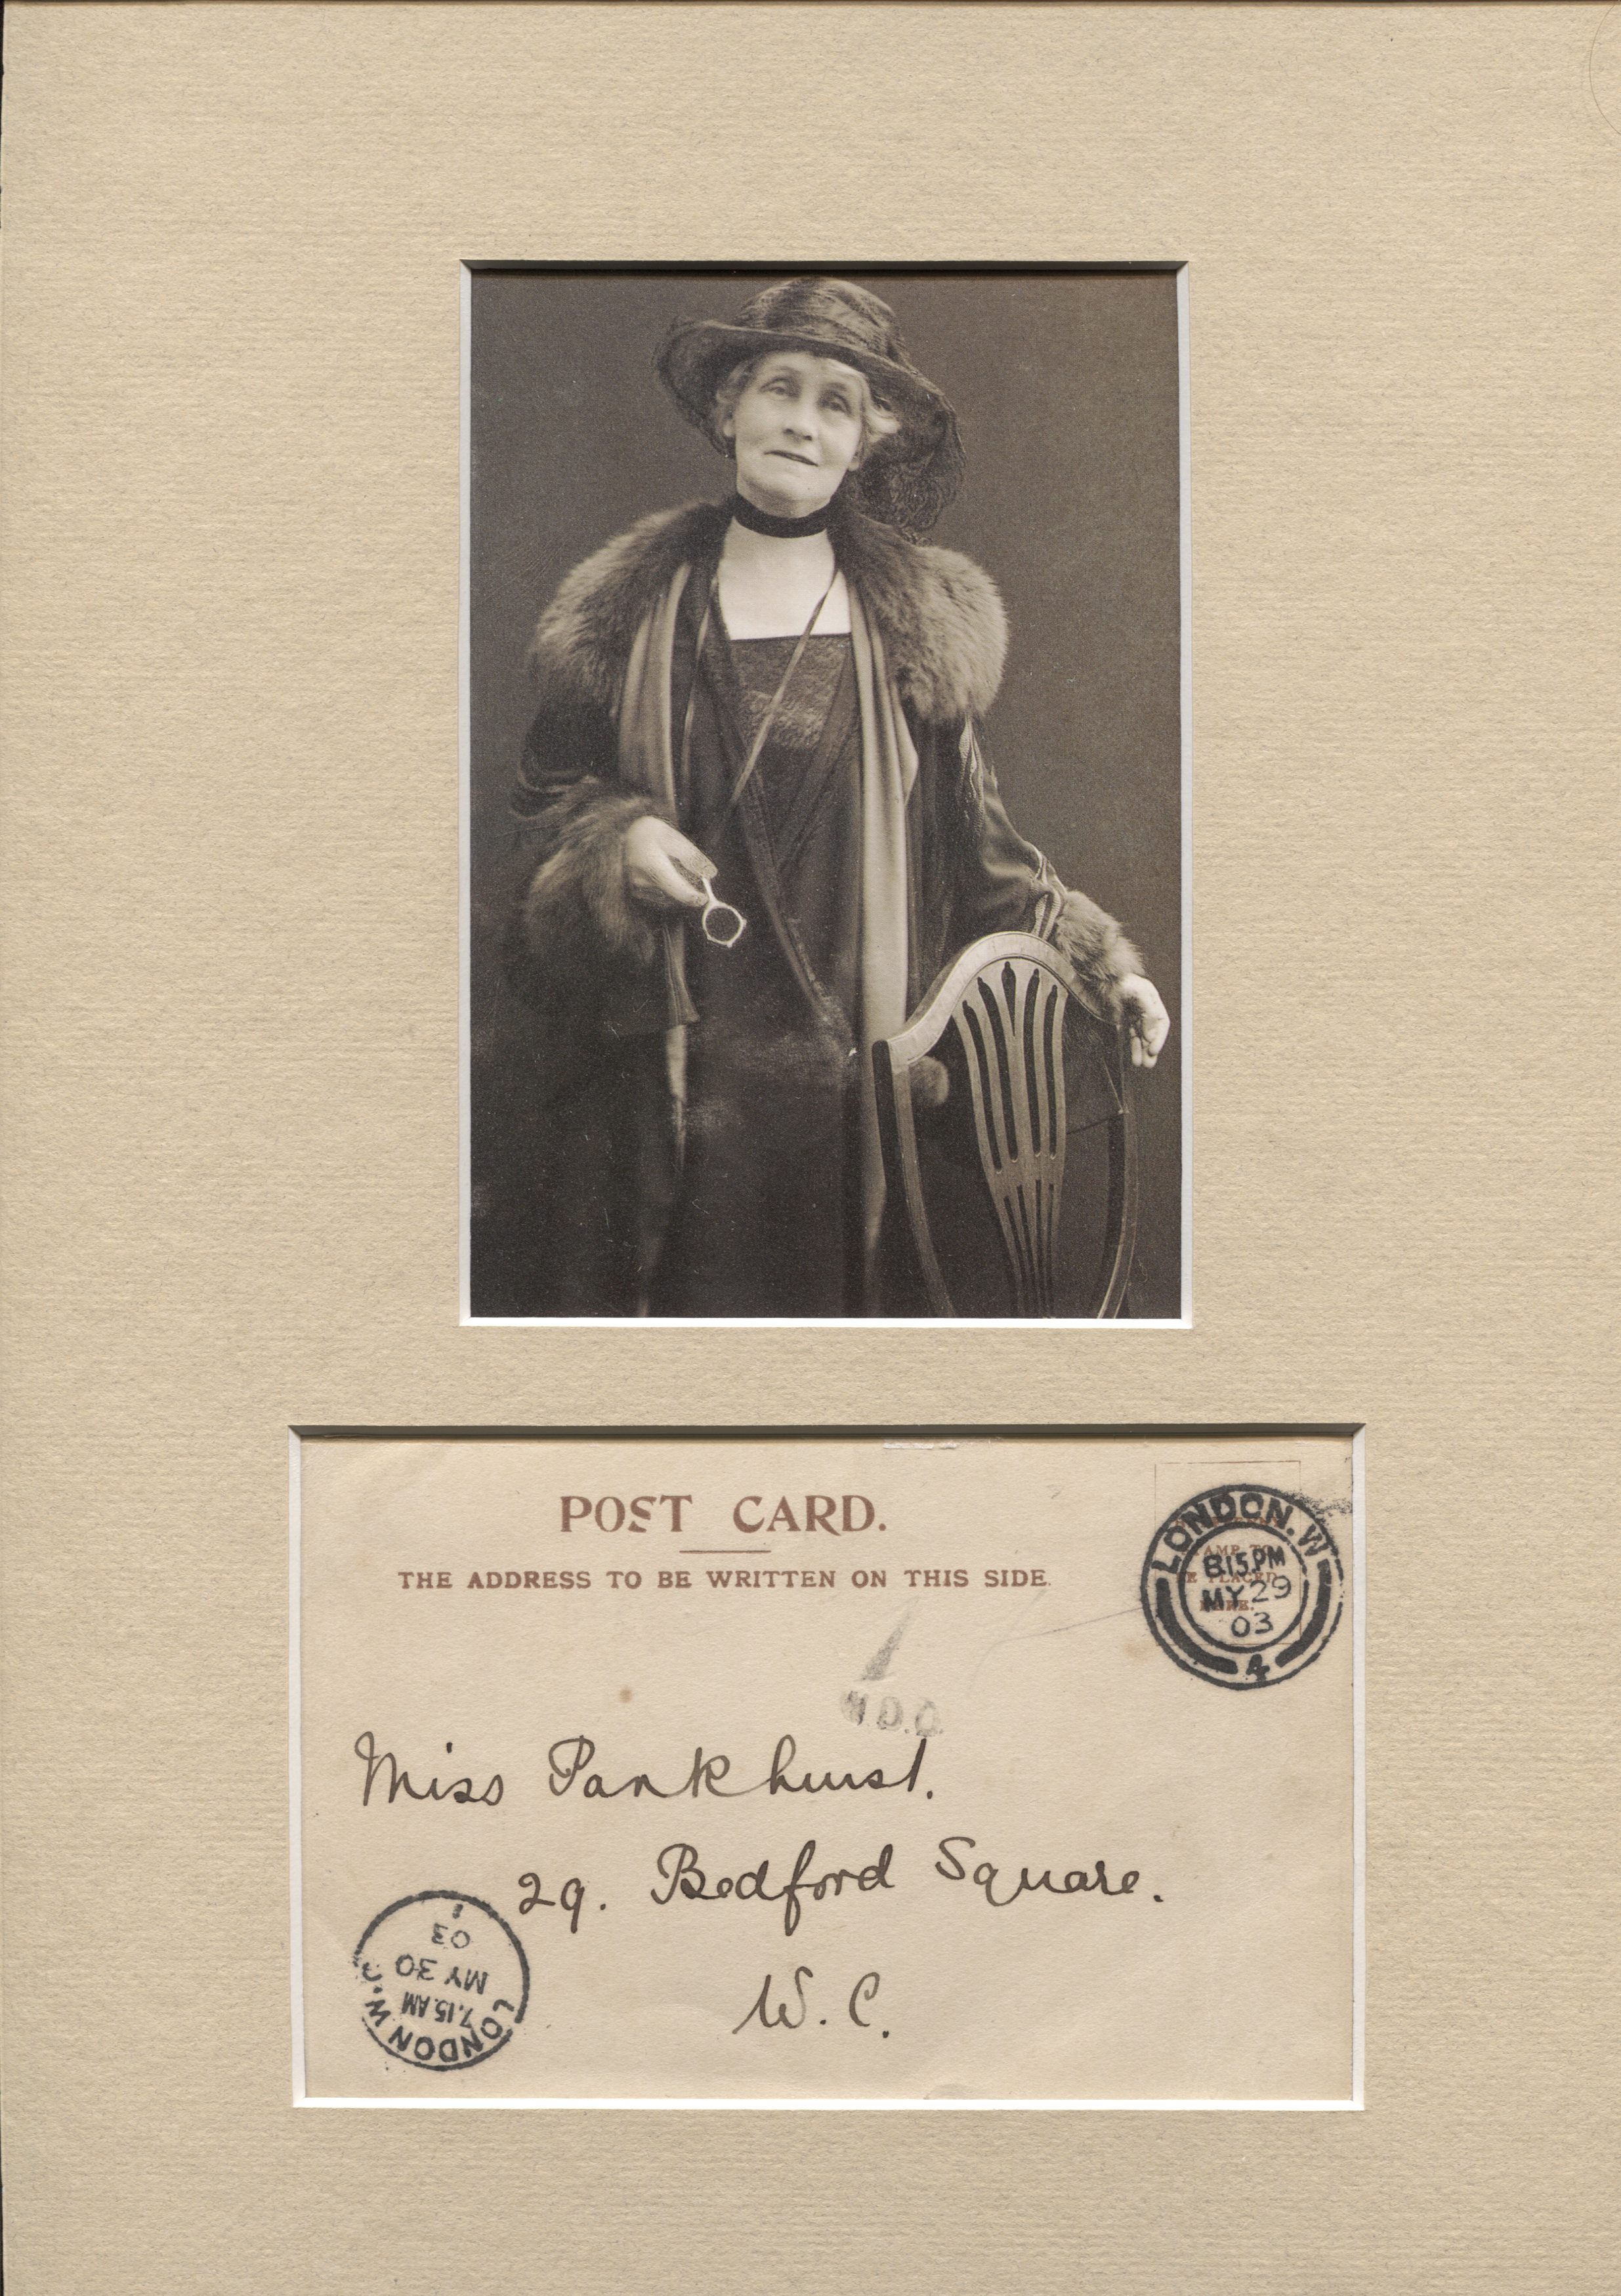 POST CARD.
THE ADDRESS TO BE WRITTEN ON THIS SIDE.
LONDON. W
8.15 PM
MY 29
03
4
Miss Pankhurst.
29. Bedford Square.
W. C.
LONDON W.C
7.15 AM
MY 30
03